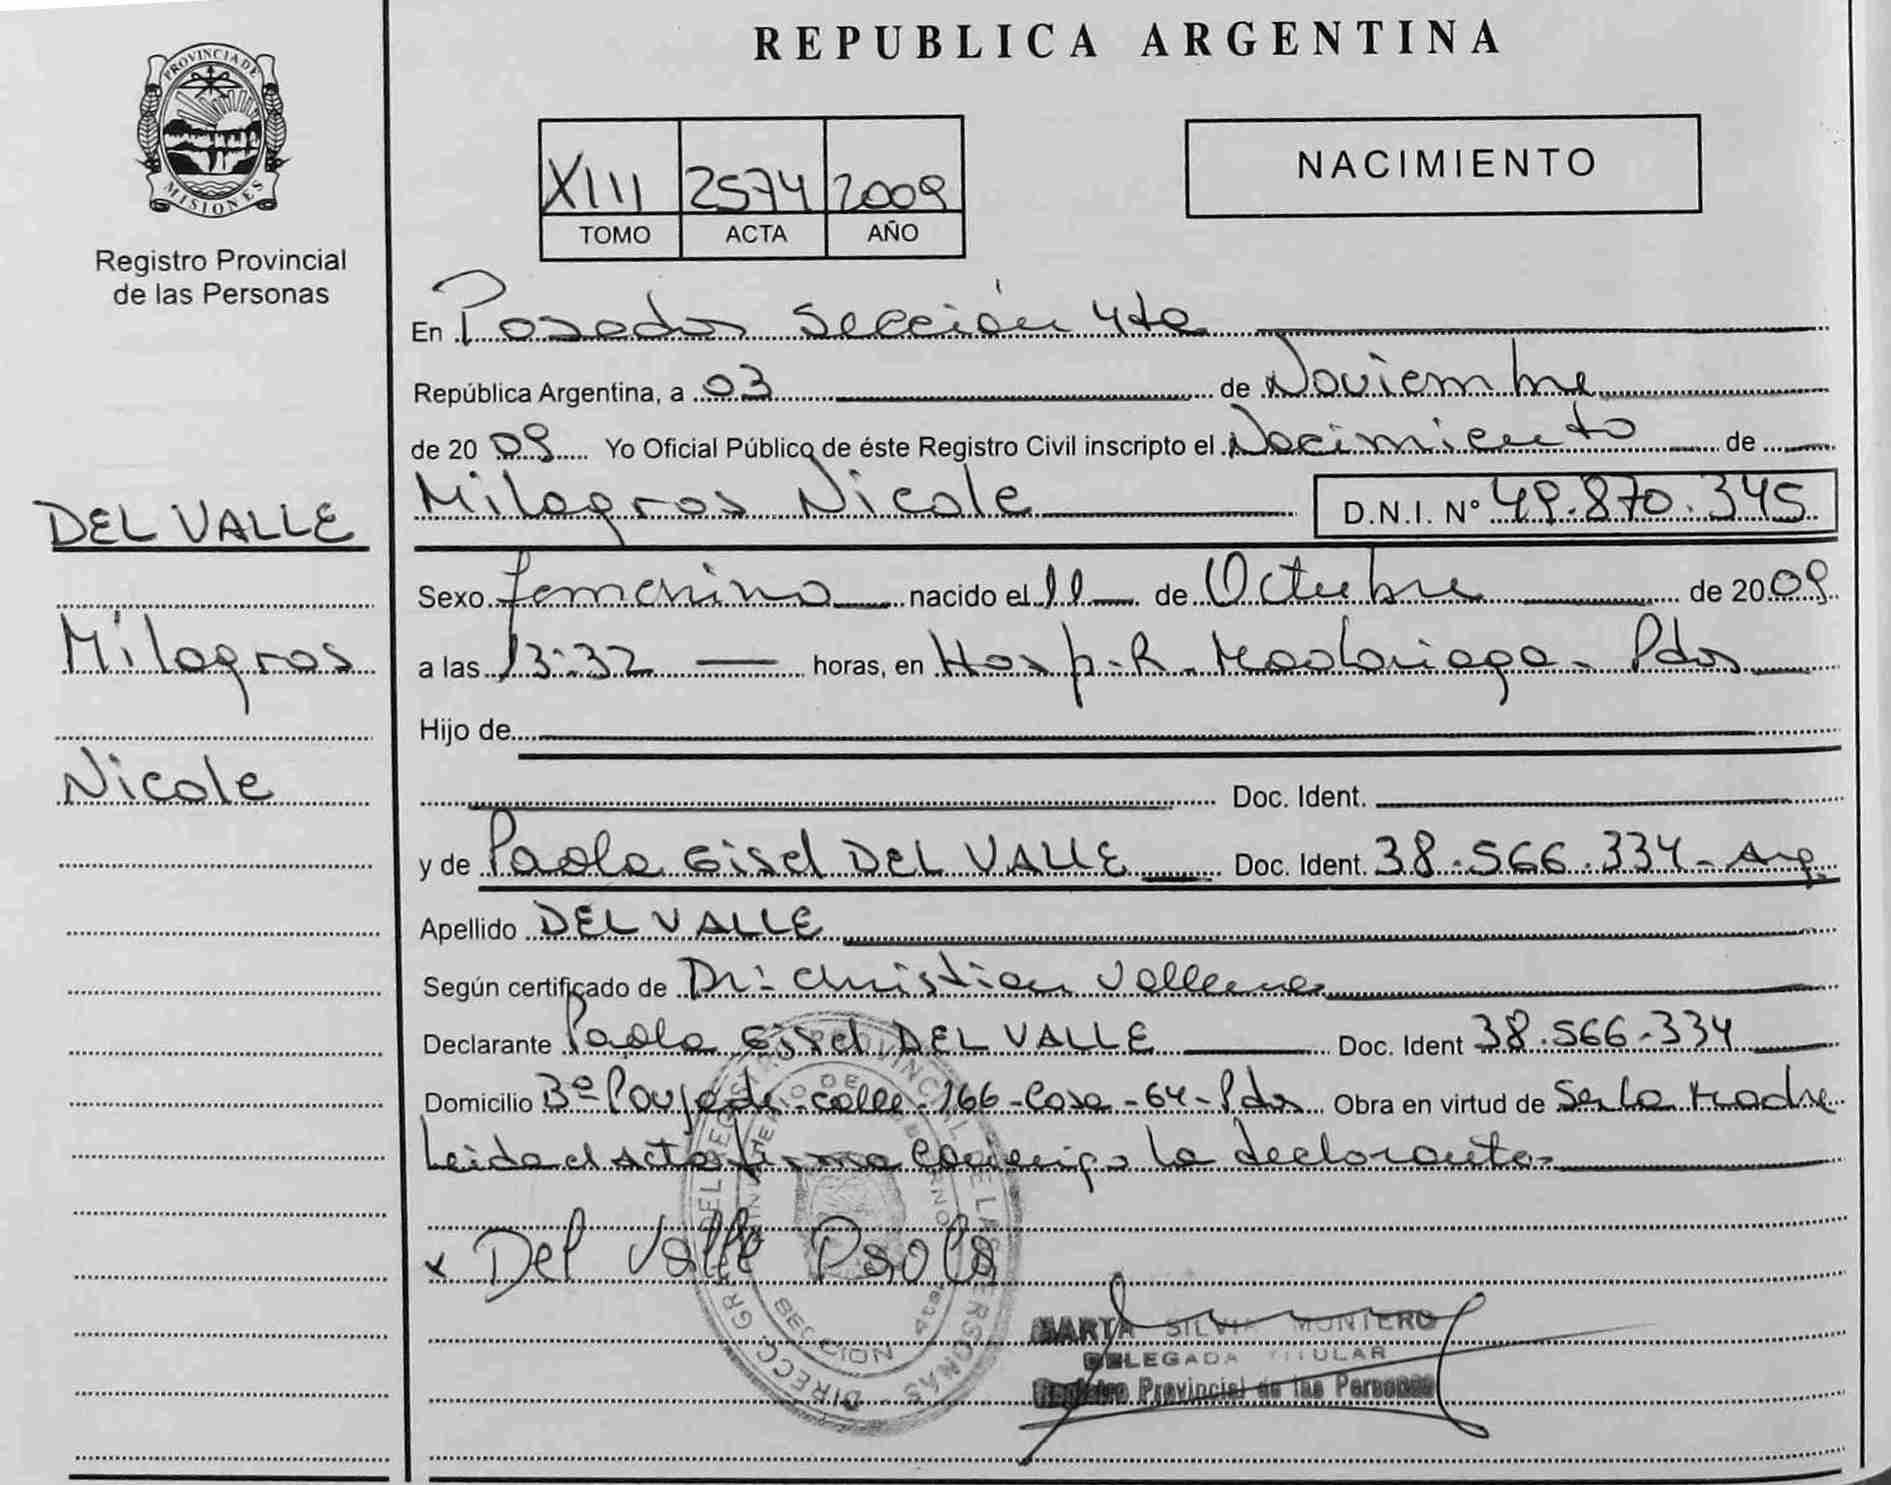 REPUBLICA ARGENTINA
PROVINCIA DE
MISIONES
Registro Provincial
de las Personas
XIII 2574 2009
TOMO ACTA AÑO
NACIMIENTO
En Posadas Sección 4ta
República Argentina, a 03 de Noviembre
de 20 09 Yo Oficial Público de éste Registro Civil inscripto el Nacimiento de
DEL VALLE
Milagros Nicole D.N.I. Nº 49.870.345
Sexo femenino nacido el 11 de Octubre de 20 09
Milagros
a las 13:32 horas, en Hosp. R. Madariaga - Pdas
Hijo de
Nicole
Doc. Ident.
y de Paola Gisel DEL VALLE Doc. Ident. 38.566.334 - Arg.
Apellido DEL VALLE
Según certificado de Dr: Christian
Declarante Paola Gisel DEL VALLE Doc. Ident 38.566.334
Domicilio Bº Poujade - calle - 166 - Casa - 64 - Pdas Obra en virtud de Ser la Madre
Leida el Acta firma conmigo la declarante
x Del Valle Paola
DIRECC. GRAL. DEL REGISTRO PROVINCIAL DE LAS PERSONAS
MINISTERIO DE GOBIERNO
SECCION 4ta.
MARTA SILVIA MONTERO
DELEGADA TITULAR
Registro Provincial de las Personas